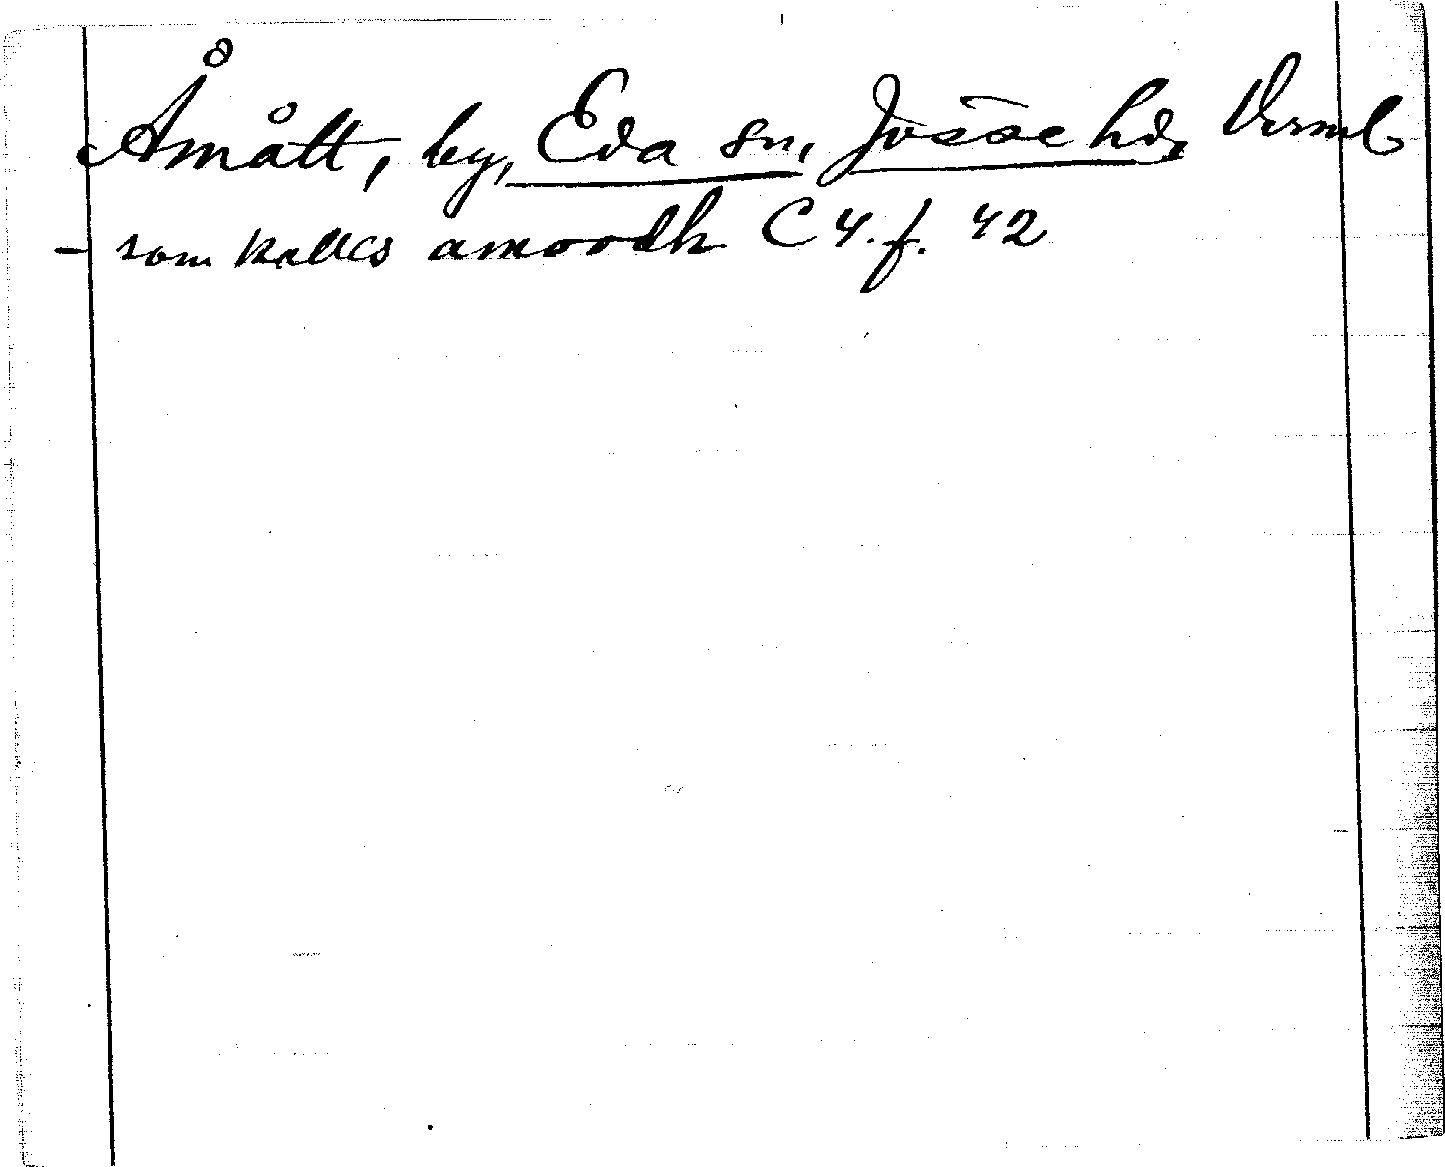 Åmått, by, Eda sn, Jösse hd, Verml
– som kalles amoodh C 4. f. 42